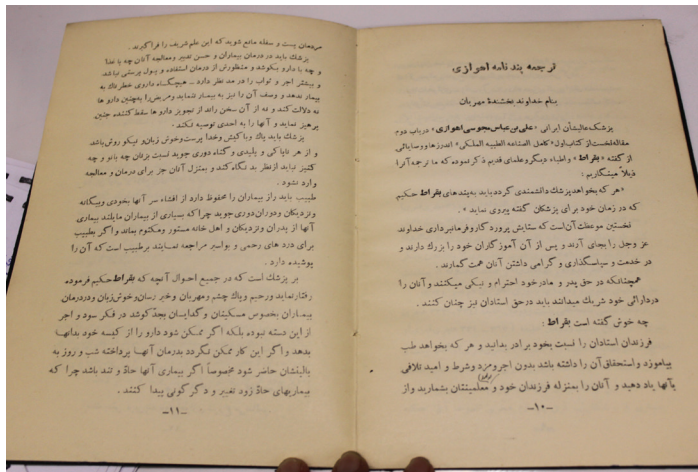 ترجمه پند نامه اهوازی
بنام خداوند بخشندهٔ مهربان
پزشک عالیشأن ایرانی «علی بن عباس مجوسی اهوازی» در باب دوم
مقاله نخست از کتاب اول «کامل الصناعه الطبیه الملکی» اندرزها و وصایائی
از گفته «بقراط» و اطباء دیگر و علمای قدیم ذکر نموده که ما ترجمه آنرا
ذیلاً مینگاریم:
«هر که بخواهد پزشک دانشمندی گردد باید به پندهای بقراط حکیم
که در زمان خود برای پزشکان گفته پیروی نماید».
نخستین موعظت آن است که ستایش پرورد کار و فرمانبرداری خداوند
عز وجل را بجای آرند و پس از آن آموز گاران خود را بزرگ دارند و
در خدمت و سپاسگذاری و گرامی داشتن آنان همت گمارند.
همچنانکه در حق پدر و مادر خود احترام و نیکی میکنند و آنان را
در دارائی خود شریک میدانند باید در حق استادان نیز چنان کنند.
چه خوش گفته است بقراط:
فرزندان استادان را نسبت بخود برادر بدانید و هر که بخواهد طب
بیاموزد و استحقاق آن را داشته باشد بدون اجر و مزد و شرط و امید تلافی
بآنها یاد دهید و آنان را بمنزله فرزندان خود و معلمینتان بشمارید و از
-۱۰-
مردمان پست و سفله مانع شوید که این علم شریف را فرا گیرند.
پزشک باید در درمان بیماران و حسن تدبیر و معالجه آنان چه با غذا
و چه با دارو بکوشد و منظورش از درمان استفاده و پول پرستی نباشد
و بیشتر اجر و ثواب را در مد نظر دارد - هیچگاه داروی خطرناک به
بیمار ندهد و وصف آن را نیز به بیمار ننماید و مریض را بدچنین دارو ها
نه دلالت کند و نه از آن سخن راند از تجویز دارو ها سقط کننده جنین
پرهیز نماید و آنها را به احدی توصیه نکند.
پزشک باید پاک و با کیش و خدا پرست و خوش زبان و نیکو روش باشد
و از هر ناپاکی و پلیدی و گناه دوری جوید نسبت بزنان چه بانو و چه
کنیز نباید از نظر بد نگاه کند و بمنزل آنان جز برای درمان و معالجه
وارد نشود.
طبیب باید راز بیماران را محفوظ دارد از افشاء سر آنها بخودی و بیگانه
و نزدیکان و دوران دوری جوید چرا که بسیاری از بیماران مایلند بیماری
آنان از پدران و نزدیکان و اهل خانه مستور و مکتوم بماند و اگر بطبیب
برای درد های رحمی و بواسیر مراجعه نمایند بر طبیب است که آن را
پوشیده دارد.
بر پزشک است که در جمیع احوال آنچه که بقراط حکیم فرموده
رفتار نماید و رحیم و پاک چشم و مهربان و خیر رسان و خوش زبان و در درمان
بیماران بخصوص مسکینان و گدایان بجد کوشد در فکر سود و اجر
از این دسته نبوده بلکه اگر ممکن شود دارو را از کیسه خود بدانها
بدهد و اگر این کار ممکن نگردد بدرمان آنها پرداخته شب و روز به
بالینشان حاضر شود مخصوصاً اگر بیماری آنها حاد و تند باشد چرا که
بیماریهای حاد زود تغییر و دگر گونی پیدا کنند.
-۱۱-